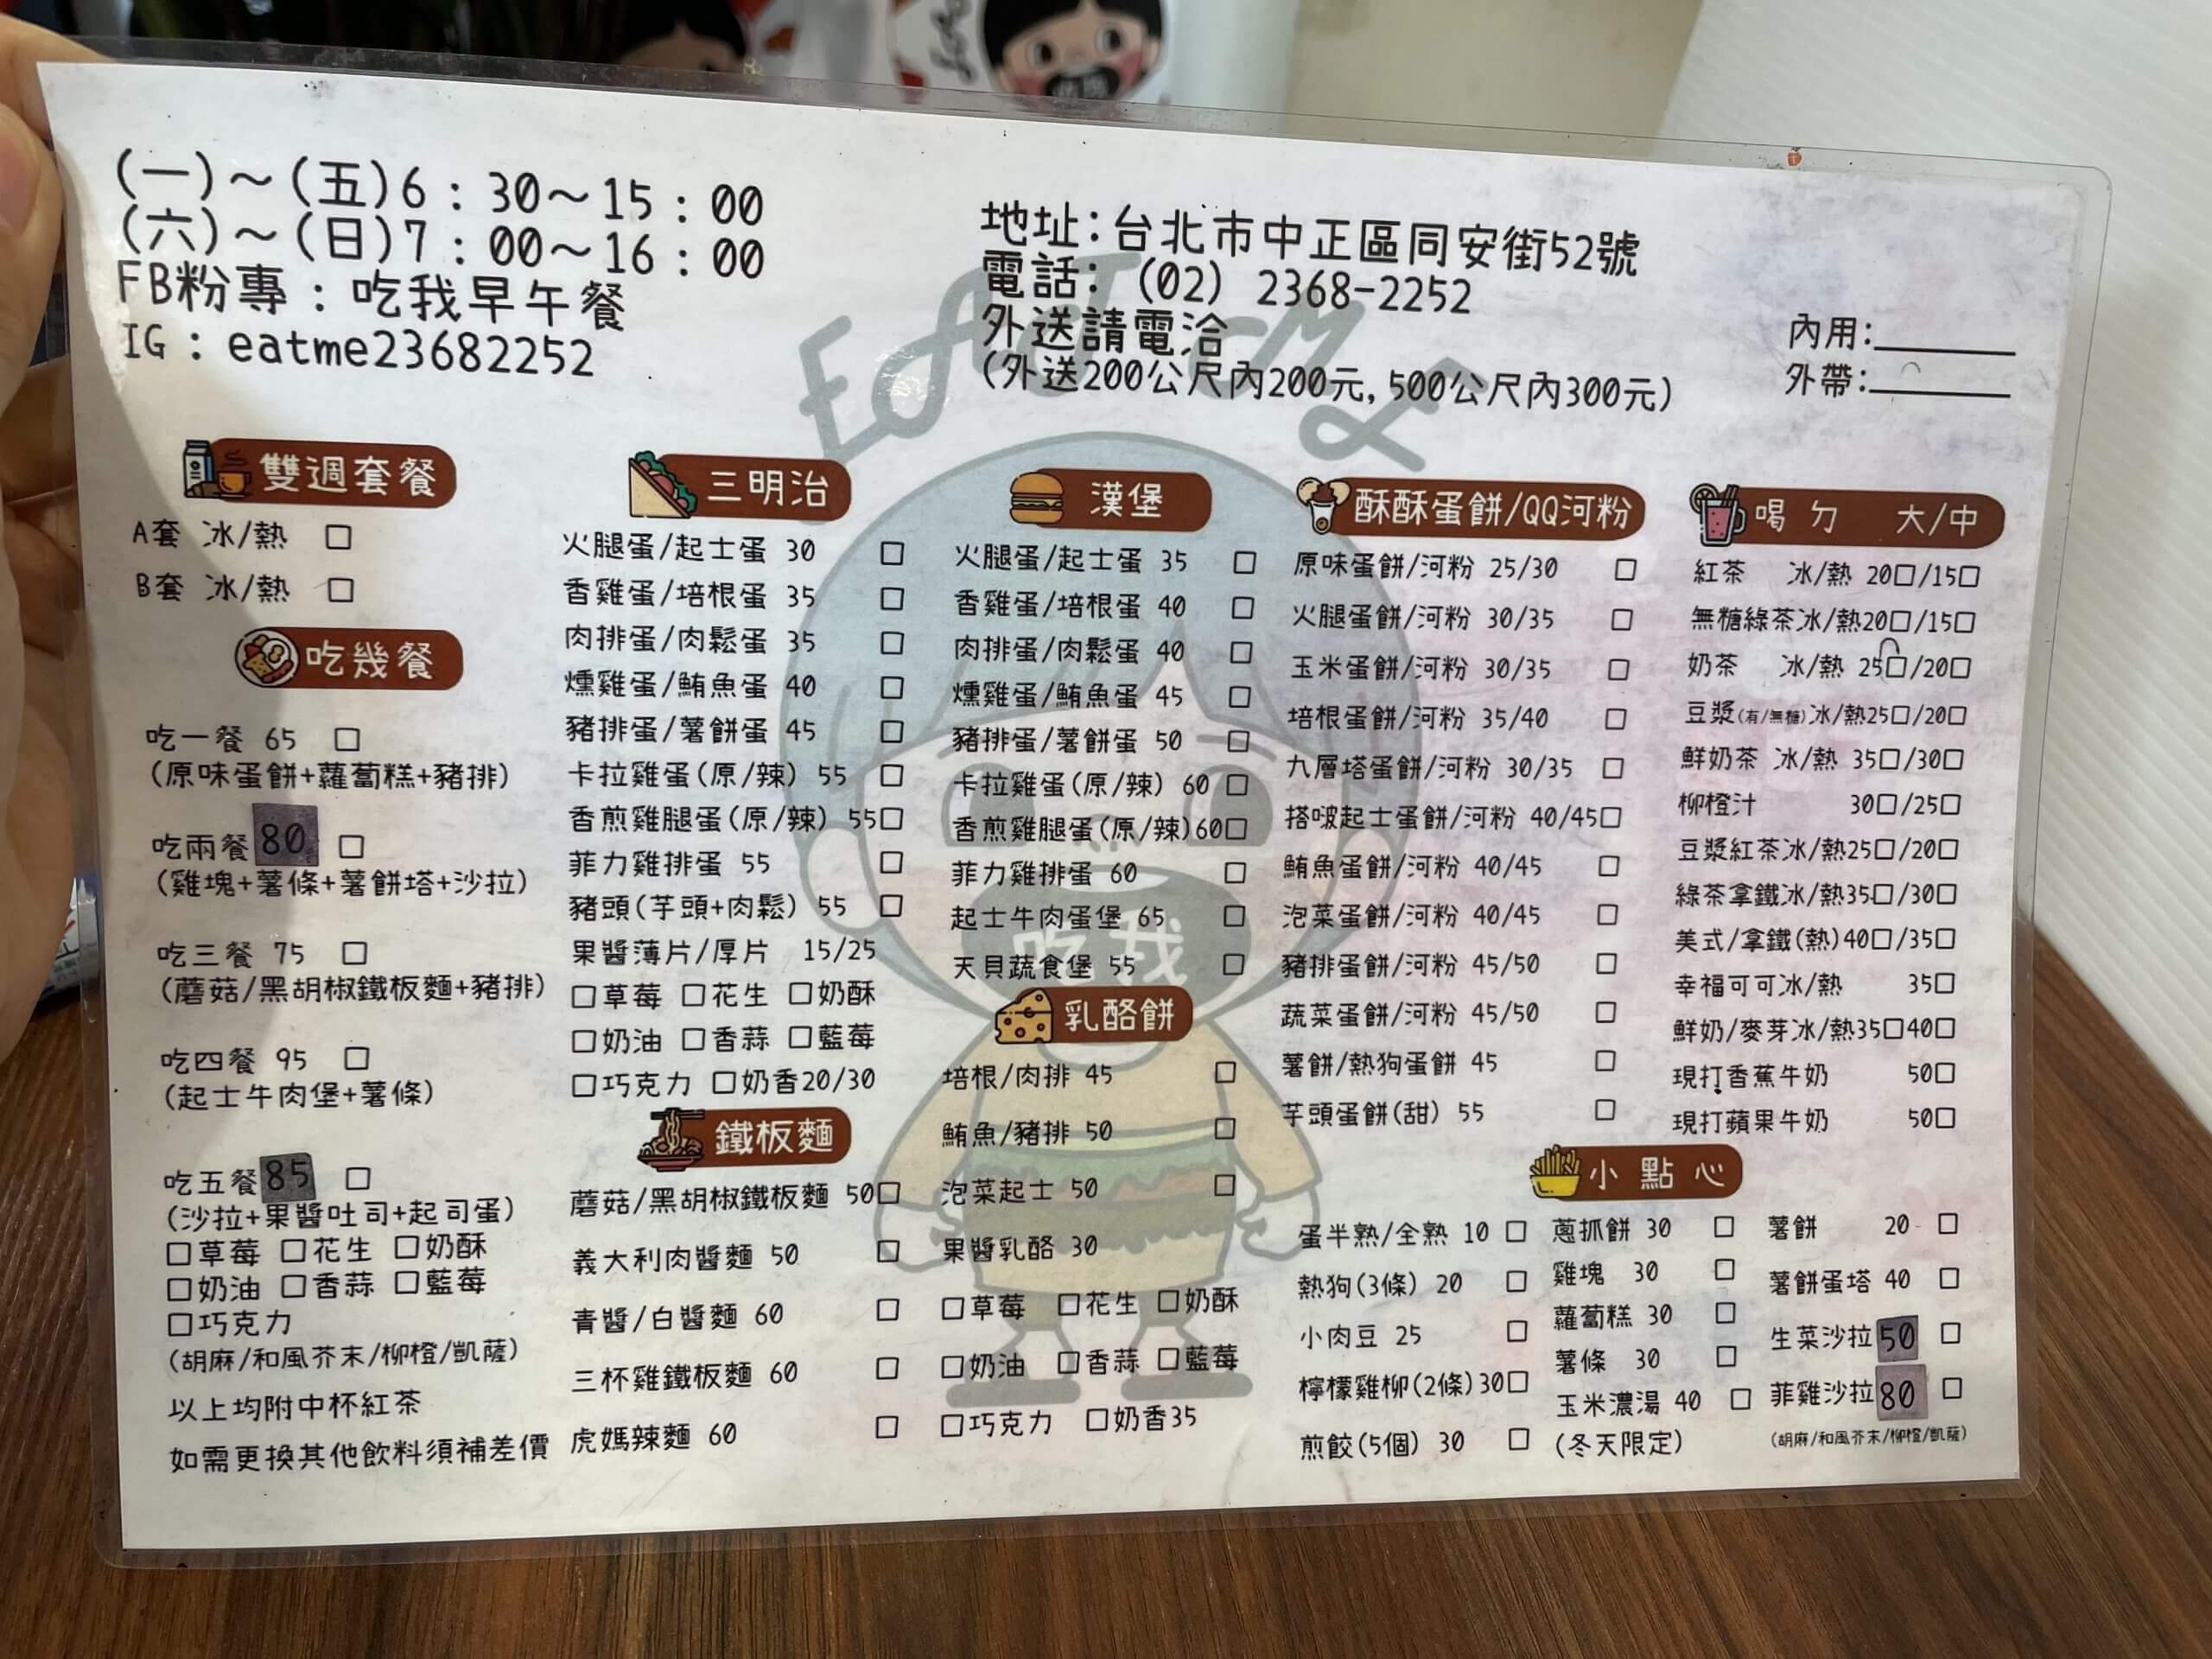 (一)～(五)6：30～15：00
(六)～(日)7：00～16：00
FB粉專：吃我早午餐
IG：eatme23682252
地址:台北市中正區同安街52號
電話: (02) 2368-2252
外送請電洽
(外送200公尺內200元,500公尺內300元)
內用:
外帶:
EAT ME
吃我
雙週套餐
A套 冰/熱 □
B套 冰/熱 □
吃幾餐
吃一餐 65 □
(原味蛋餅+蘿蔔糕+豬排)
吃兩餐 80 □
(雞塊+薯條+薯餅塔+沙拉)
吃三餐 75 □
(蘑菇/黑胡椒鐵板麵+豬排)
吃四餐 95 □
(起士牛肉堡+薯條)
吃五餐 85 □
(沙拉+果醬吐司+起司蛋)
□草莓 □花生 □奶酥
□奶油 □香蒜 □藍莓
□巧克力
(胡麻/和風芥末/柳橙/凱薩)
以上均附中杯紅茶
如需更換其他飲料須補差價
三明治
火腿蛋/起士蛋 30 □
香雞蛋/培根蛋 35 □
肉排蛋/肉鬆蛋 35 □
燻雞蛋/鮪魚蛋 40 □
豬排蛋/薯餅蛋 45 □
卡拉雞蛋(原/辣) 55 □
香煎雞腿蛋(原/辣) 55□
菲力雞排蛋 55 □
豬頭(芋頭+肉鬆) 55 □
果醬薄片/厚片 15/25
□草莓 □花生 □奶酥
□奶油 □香蒜 □藍莓
□巧克力 □奶香20/30
鐵板麵
蘑菇/黑胡椒鐵板麵 50□
義大利肉醬麵 50 □
青醬/白醬麵 60 □
三杯雞鐵板麵 60 □
虎媽辣麵 60 □
漢堡
火腿蛋/起士蛋 35 □
香雞蛋/培根蛋 40 □
肉排蛋/肉鬆蛋 40 □
燻雞蛋/鮪魚蛋 45 □
豬排蛋/薯餅蛋 50 □
卡拉雞蛋(原/辣) 60 □
香煎雞腿蛋(原/辣)60□
菲力雞排蛋 60 □
起士牛肉蛋堡 65 □
天貝蔬食堡 55 □
乳酪餅
培根/肉排 45 □
鮪魚/豬排 50 □
泡菜起士 50 □
果醬乳酪 30
□草莓 □花生 □奶酥
□奶油 □香蒜 □藍莓
□巧克力 □奶香35
酥酥蛋餅/QQ河粉
原味蛋餅/河粉 25/30 □
火腿蛋餅/河粉 30/35 □
玉米蛋餅/河粉 30/35 □
培根蛋餅/河粉 35/40 □
九層塔蛋餅/河粉 30/35 □
搭啵起士蛋餅/河粉 40/45□
鮪魚蛋餅/河粉 40/45 □
泡菜蛋餅/河粉 40/45 □
豬排蛋餅/河粉 45/50 □
蔬菜蛋餅/河粉 45/50 □
薯餅/熱狗蛋餅 45 □
芋頭蛋餅(甜) 55 □
喝ㄉ 大/中
紅茶 冰/熱 20□/15□
無糖綠茶冰/熱20□/15□
奶茶 冰/熱 25□/20□
豆漿(有/無糖)冰/熱25□/20□
鮮奶茶 冰/熱 35□/30□
柳橙汁 30□/25□
豆漿紅茶冰/熱25□/20□
綠茶拿鐵冰/熱35□/30□
美式/拿鐵(熱)40□/35□
幸福可可冰/熱 35□
鮮奶/麥芽冰/熱35□40□
現打香蕉牛奶 50□
現打蘋果牛奶 50□
小點心
蛋半熟/全熟 10 □
熱狗(3條) 20 □
小肉豆 25 □
檸檬雞柳(2條)30□
煎餃(5個) 30 □
蔥抓餅 30 □
雞塊 30 □
蘿蔔糕 30 □
薯條 30 □
玉米濃湯 40 □
(冬天限定)
薯餅 20 □
薯餅蛋塔 40 □
生菜沙拉 50 □
菲雞沙拉 80 □
(胡麻/和風芥末/柳橙/凱薩)